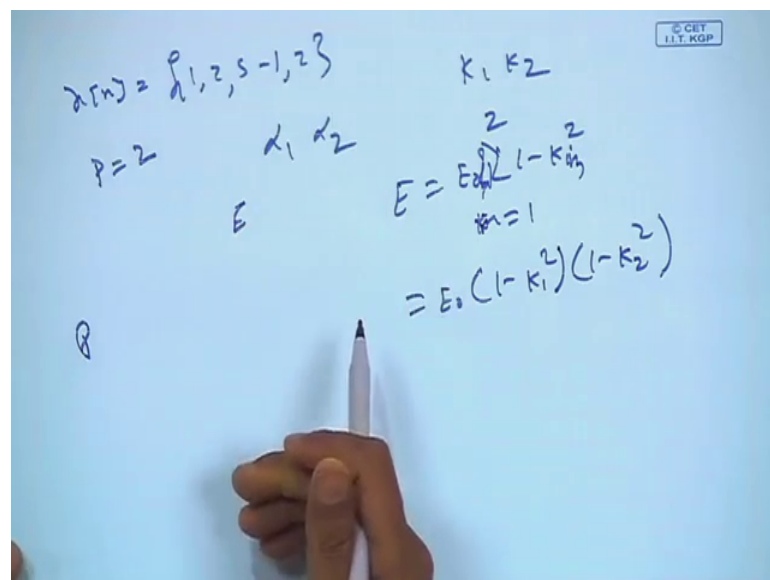 © CET
I.I.T. KGP
x[n] = {1, 2, 5 -1, 2}
K₁ K₂
P = 2
α₁ α₂
E
2
E = E₀ 1 - Kₘ²
m = 1
= E₀ (1 - K₁²)(1 - K₂²)